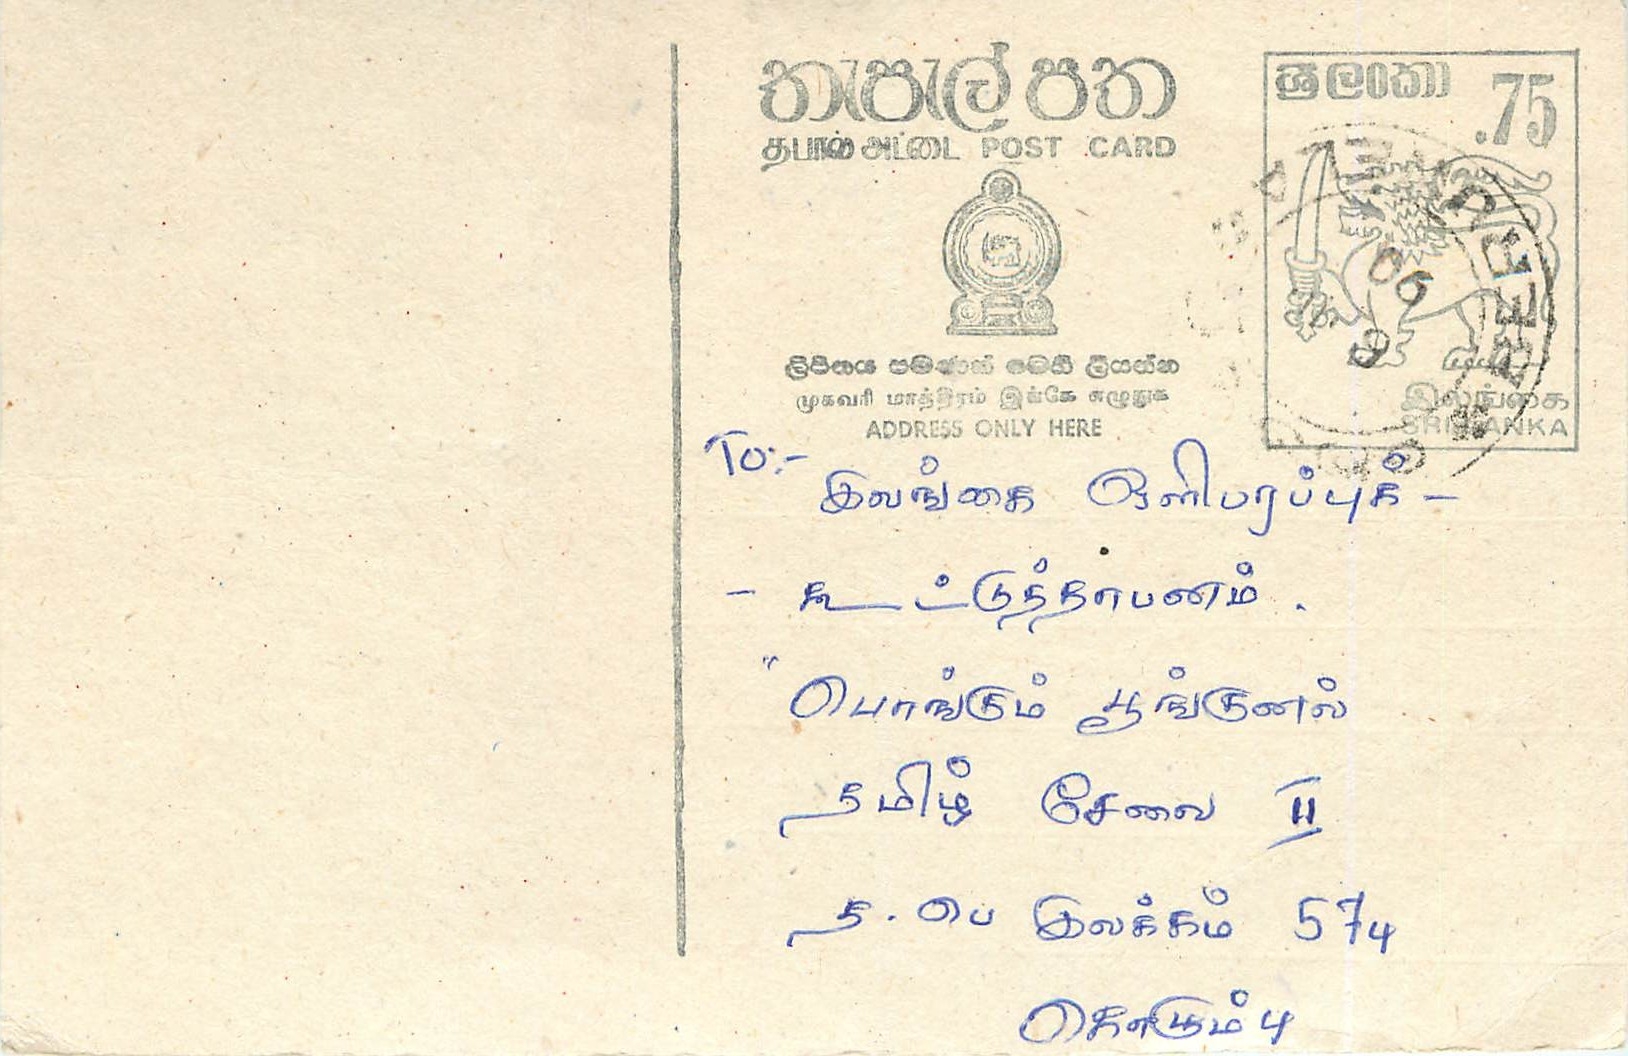 තැපැල් පත
ශ්‍රී ලංකා .75
தபால் அட்டை POST CARD
ලිපිනය පමණක් මෙහි ලියන්න
முகவரி மாத்திரம் இங்கே எழுதுக
ADDRESS ONLY HERE
இலங்கை
SRI LANKA
To:-
இலங்கை ஒளிபரப்புக் -
- கூட்டுத்தாபனம் .
" பொங்கும் பூங்டுனல்
தமிழ் சேவை II
த . பெ இலக்கம் 574
கொழும்பு